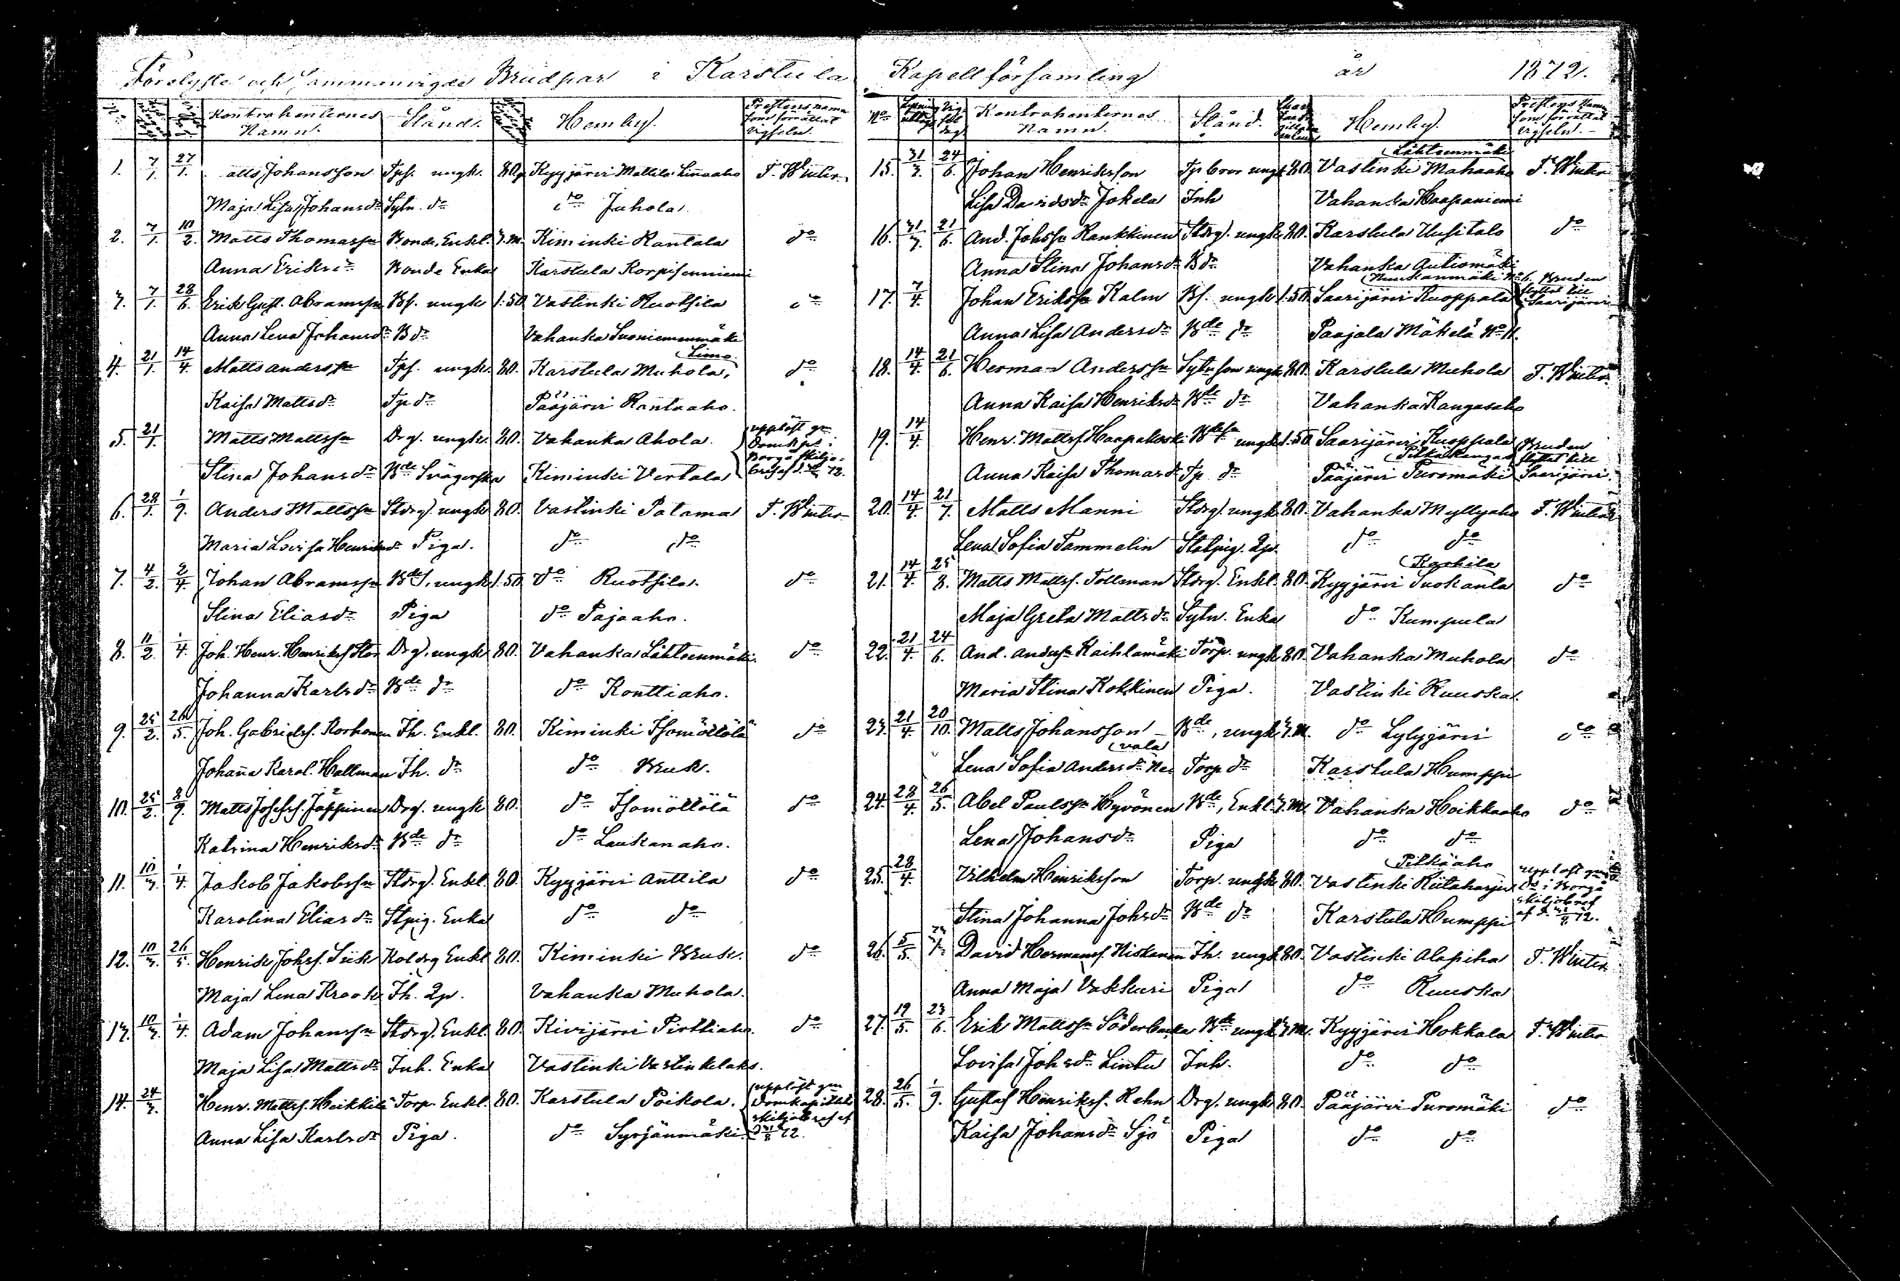 Förelyste och Sammanvigde Brudpar i Karstula Kapellförsamling år 1872.
Kontrahenternes Namn. Stånd. Hemby. Prestens namn som förrättat vigseln.
1. 7/1. 27/1. Johansson Tps. ungk. 80p Kyyjärvi Mattila Linnaaho F. Winter
Maja Lisa Johansdr Sytn. do do Juhola.
2. 7/1. 10/2. Matts Thomasson Bonde, Enkl. 3.M. Kiminki Rantala do
Anna Eriksdr Bonde Enka Karstula Korpisenniemi
3. 7/1. 28/6. Erik Gust. Abramsson Bs. ungk. 1.50. Vastinki Ruotsila do
Anna Lena Johansdr B do Vahanka Suoniemenmäki
4. 21/1. 14/4. Matts Andersson Tps. ungk. 80. Karstula Muhola, Simo do
Kaisa Mattsdr Tp do Pääjärvi Rantaaho.
5. 21/1. Matts Mattsson Drg. ungk. 80. Vahanka Ahola. upplöst gm Domkpl. i Borgå skiljobref
Stina Johansdr Bde Svägerska Kiminki Vertala
6. 28/1. 1/9. Anders Mattsson Stdrg. ungk. 80. Vastinki Patama F. Winter
Maria Lovisa Henriksdr Piga. do do
7. 4/2. 2/4. Johan Abramsson Bdes. ungk. 1.50. do Ruotsila. do
Stina Eliasdr Piga do Pajaaho.
8. 11/2. 1/4. Joh. Henr. Henrikss. Stor Drg. ungk 80. Vahanka Lähteenmäki. do
Johanna Karlsdr Bde do do Konttiaho.
9. 25/2. 26/5. Joh. Gabrielss. Korhonen Ih. Enkl. 80. Kiminki Isomöttölä do
Johanna Karol. Hallman Ih. do do Bruk.
10. 25/2. 8/9. Matts Josefss. Jäppinen Drg. ungk 80. do Isomöttölä do
Katrina Henriksdr Bde do do Laukanaho.
11. 10/3. 1/4. Jakob Jakobsson Stdrg. Enkl. 80. Kyyjärvi Anttila do
Karolina Eliasdr Stpig. Enka do do
12. 10/3. 26/5. Henrik Johss. Siik Koldrg Enkl 80. Kiminki Bruk. do
Maja Lena Krook Ih. Qp. Vahanka Muhola.
13. 10/3. 1/4. Adam Johansson Stdrg. Enkl. 80. Kivijärvi Pirttiaho. do
Maja Lisa Mattsdr Inh. Enka Vastinki Vastinkilaks.
14. 24/3. Henr. Mattss. Heikkilä Torp. Enkl. 80. Karstula Poikola. upplöst gm Domkapitlets skiljobref af
Anna Lisa Karlsdr Piga. do Syrjänmäki 72.
No Kontrahenternes Namn. Stånd. Hemby. Prestens Namn som förrättat vigseln.
15. 31/3. 24/6. Johan Henriksson Tp. bror ungk 80. Vastinki Mahaaho Lähteenmäki F. Winter
Lisa Davidsdr Jokela Inh Vahanka Haapaniemi
16. 31/3. 21/6. And. Johsson Rankkinen Stdrg. ungk 80. Karstula Uusitalo do
Anna Stina Johansdr B do Vahanka Autiomäki
17. 7/4. Johan Eriksson Kalm Bs. ungk 1.50. Saarijärvi Kuoppala Bruden flyttat till Saarijärvi
Anna Lisa Andersdr Bde do Paajala Mäkelä No 11.
18. 14/4. 21/6. Herman Andersson Sytn. son ungk 80. Karstula Muhola F. Winter
Anna Kaisa Henriksdr Bde do Vahanka Kangasaho
19. 14/4. Henr. Mattss. Haapakoski ungk 1.50. Saarijärvi Kuoppala Bruden flyttat till Saarijärvi.
Anna Kaisa Thomasdr Tp. do Pääjärvi Puromäki
20. 14/4. 21/7. Matts Manni Stdrg. ungk 80. Vahanka Myllyaho F. Winter
Lena Sofia Tammelin Stdpig. Qp. do do
21. 14/4. 25/8. Matts Mattss. Tollman Stdrg. Enkl. 80. Kyyjärvi Suokanta do
Maja Greta Mattsdr Sytn. Enka do Kumpula
22. 21/4. 24/6. And. Andersson Kaihlamäki Torp. ungk 80. Vahanka Muhola do
Maria Stina Kokkinen Piga. Vastinki Ruuska.
23. 21/4. 20/10. Matts Johansson Bde, ungk 3.M. do Lylyjärvi do
Lena Sofia Andersdr Torp do Karstula Humppi
24. 28/4. 26/5. Abel Paulsson Hyvönen Bde, Enkl. 3.M. Vahanka Hoikkaaho do
Lena Johansdr Piga do do
25. 28/4. Vilhelm Henriksson Torp. ungk 80. Vastinki Riitaharju Pitkäaho upplöst gm Dk i Borgå skiljobref
Stina Johanna Johsdr Bde do Karstula Humppi 72.
26. 5/5. David Hermanss. Hiskanen Ih. ungk 80. Vastinki Alapiha F. Winter
Anna Maja Vakkuri Piga do Ruuska
27. 19/5. 23/6. Erik Mattsson Söderbacka Bde ungk 3.M. Kyyjärvi Hokkala F. Winter
Lovisa Johsdr Lintu Inh. do do
28. 26/5. 1/9. Gustaf Henrikss. Rehn Drg. ungk 80. Pääjärvi Puromäki do
Kaisa Johansdr Sjö Piga do do